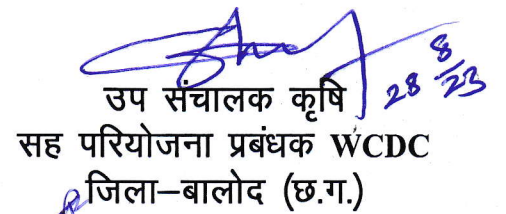 28 8/23
उप संचालक कृषि
सह परियोजना प्रबंधक WCDC
जिला–बालोद (छ.ग.)